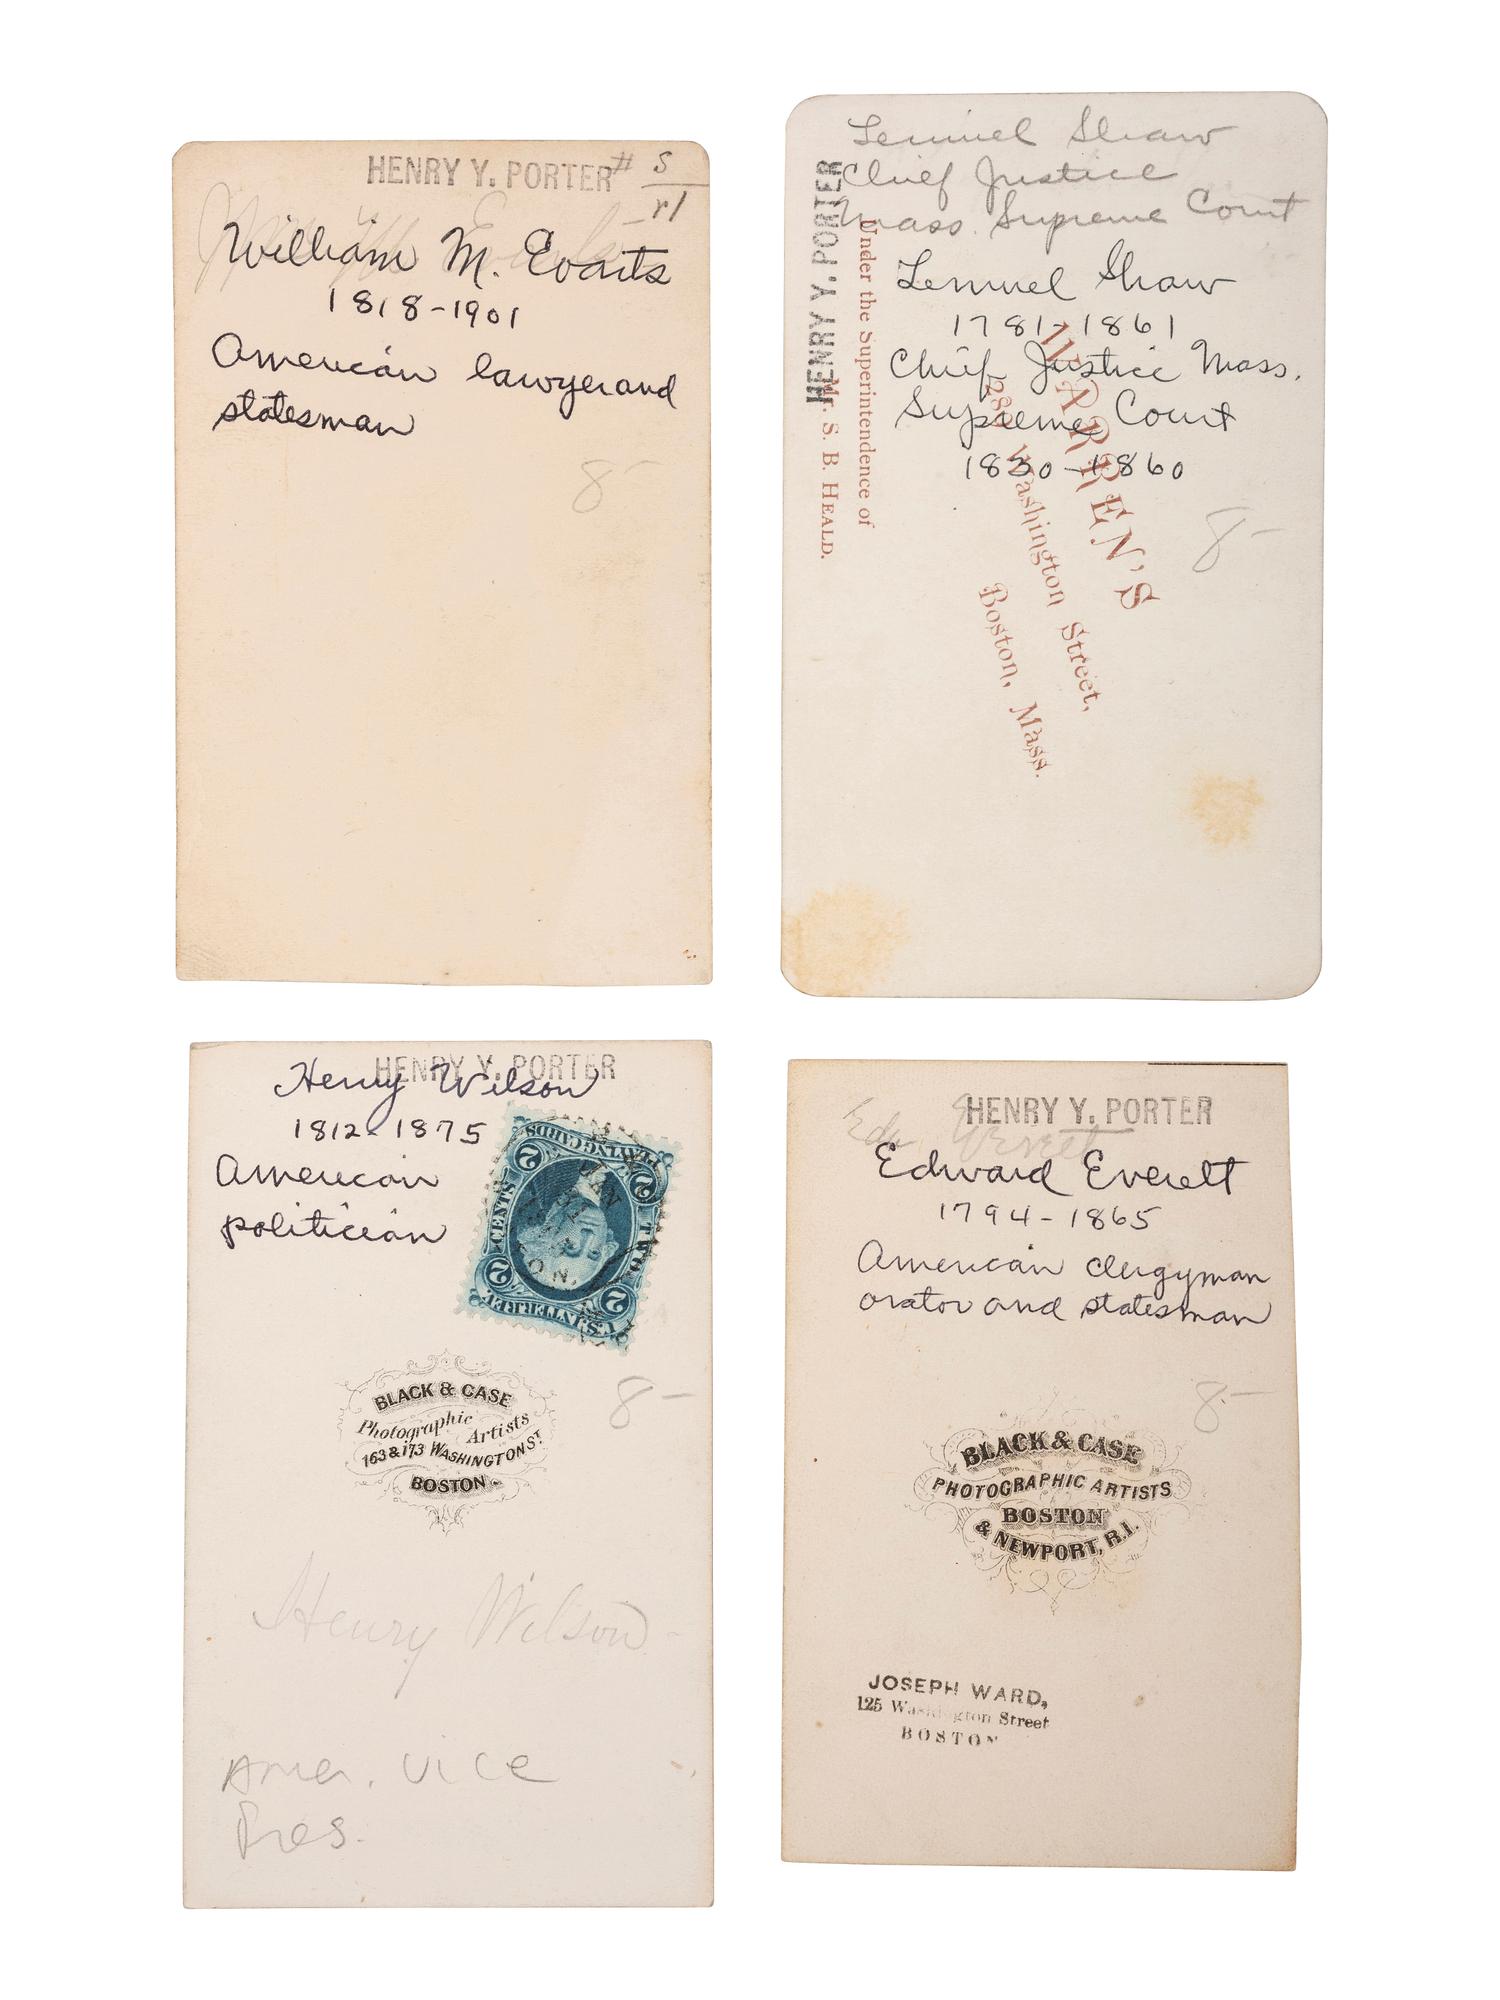 HENRY Y. PORTER
# S
rl
William M. Evarts
1818-1901
American lawyer and
statesman
8-
Lemuel Shaw
Chief Justice
Mass. Supreme Court
HENRY Y. PORTER
Under the Superintendence of
Mr. S. B. HEALD.
Lemuel Shaw
1781-1861
Chief Justice Mass.
Supreme Court
1830-1860
WARREN'S
289 Washington Street,
Boston, Mass.
8-
HENRY Y. PORTER
Henry Wilson
1812-1875
American
politician
PLAYING CARDS
2 2
CENTS TWO
2 2
U.S. INTER. REV.
BLACK & CASE
Photographic Artists
163 & 173 WASHINGTON ST.
BOSTON
8-
Henry Wilson
Amer. Vice
Pres.
HENRY Y. PORTER
Edw. Everett
Edward Everett
1794-1865
American clergyman
orator and statesman
8-
BLACK & CASE
PHOTOGRAPHIC ARTISTS
BOSTON
& NEWPORT, R.I.
JOSEPH WARD,
125 Washington Street
BOSTON